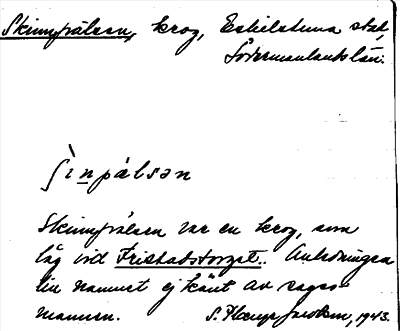 Skinnpälsen, krog, Eskilstuna stad,
Södermanlands län.
ʃìnpälsən
Skinnpälsen var en krog, som
låg vid Fristadstorget. Anledningen
till namnet ej känt av sages-
mannen. S. 1943.